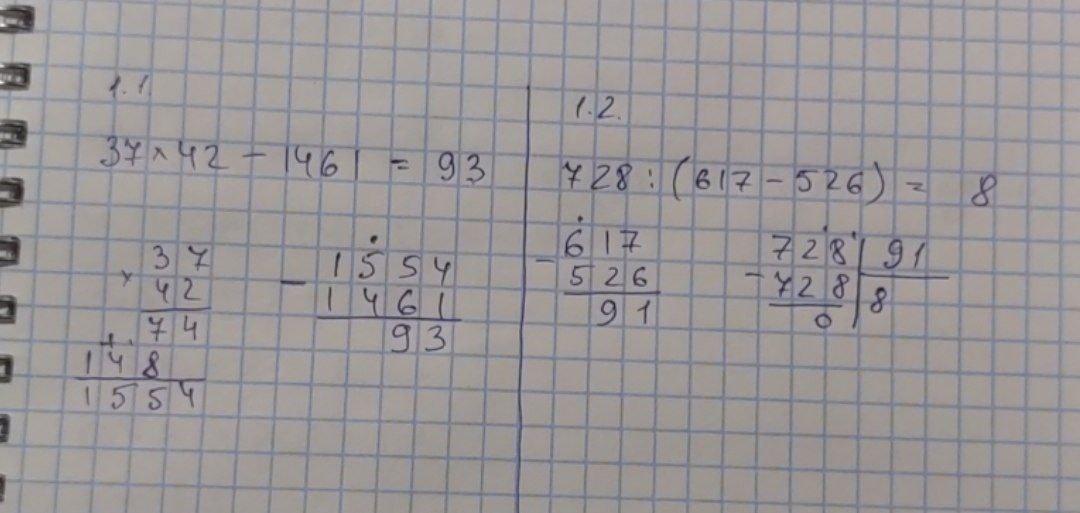 1.1
37 × 42 - 1461 = 93
37
× 42
74
+
148
1554
1554
- 1461
93
1.2.
728 : (617 - 526) = 8
617
- 526
91
728 | 91
- 728 | 8
0